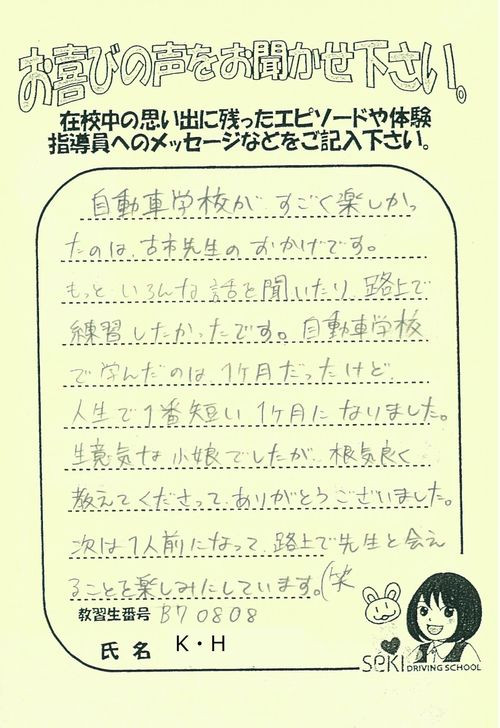 お喜びの声をお聞かせ下さい。
在校中の思い出に残ったエピソードや体験
指導員へのメッセージなどをご記入下さい。
自動車学校が、すごく楽しかっ
たのは、古市先生のおかげです。
もっと、いろんな話を聞いたり、路上で
練習したかったです。自動車学校
で学んだのは、1ヶ月だったけど、
人生で1番短い1ヶ月になりました。
生意気な小娘でしたが、根気良く
教えてくださって、ありがとうございました。
次は1人前になって、路上で先生と会え
ることを楽しみにしています。(笑
教習生番号 B70808
氏名 K・H
SeKI DRIVING SCHOOL